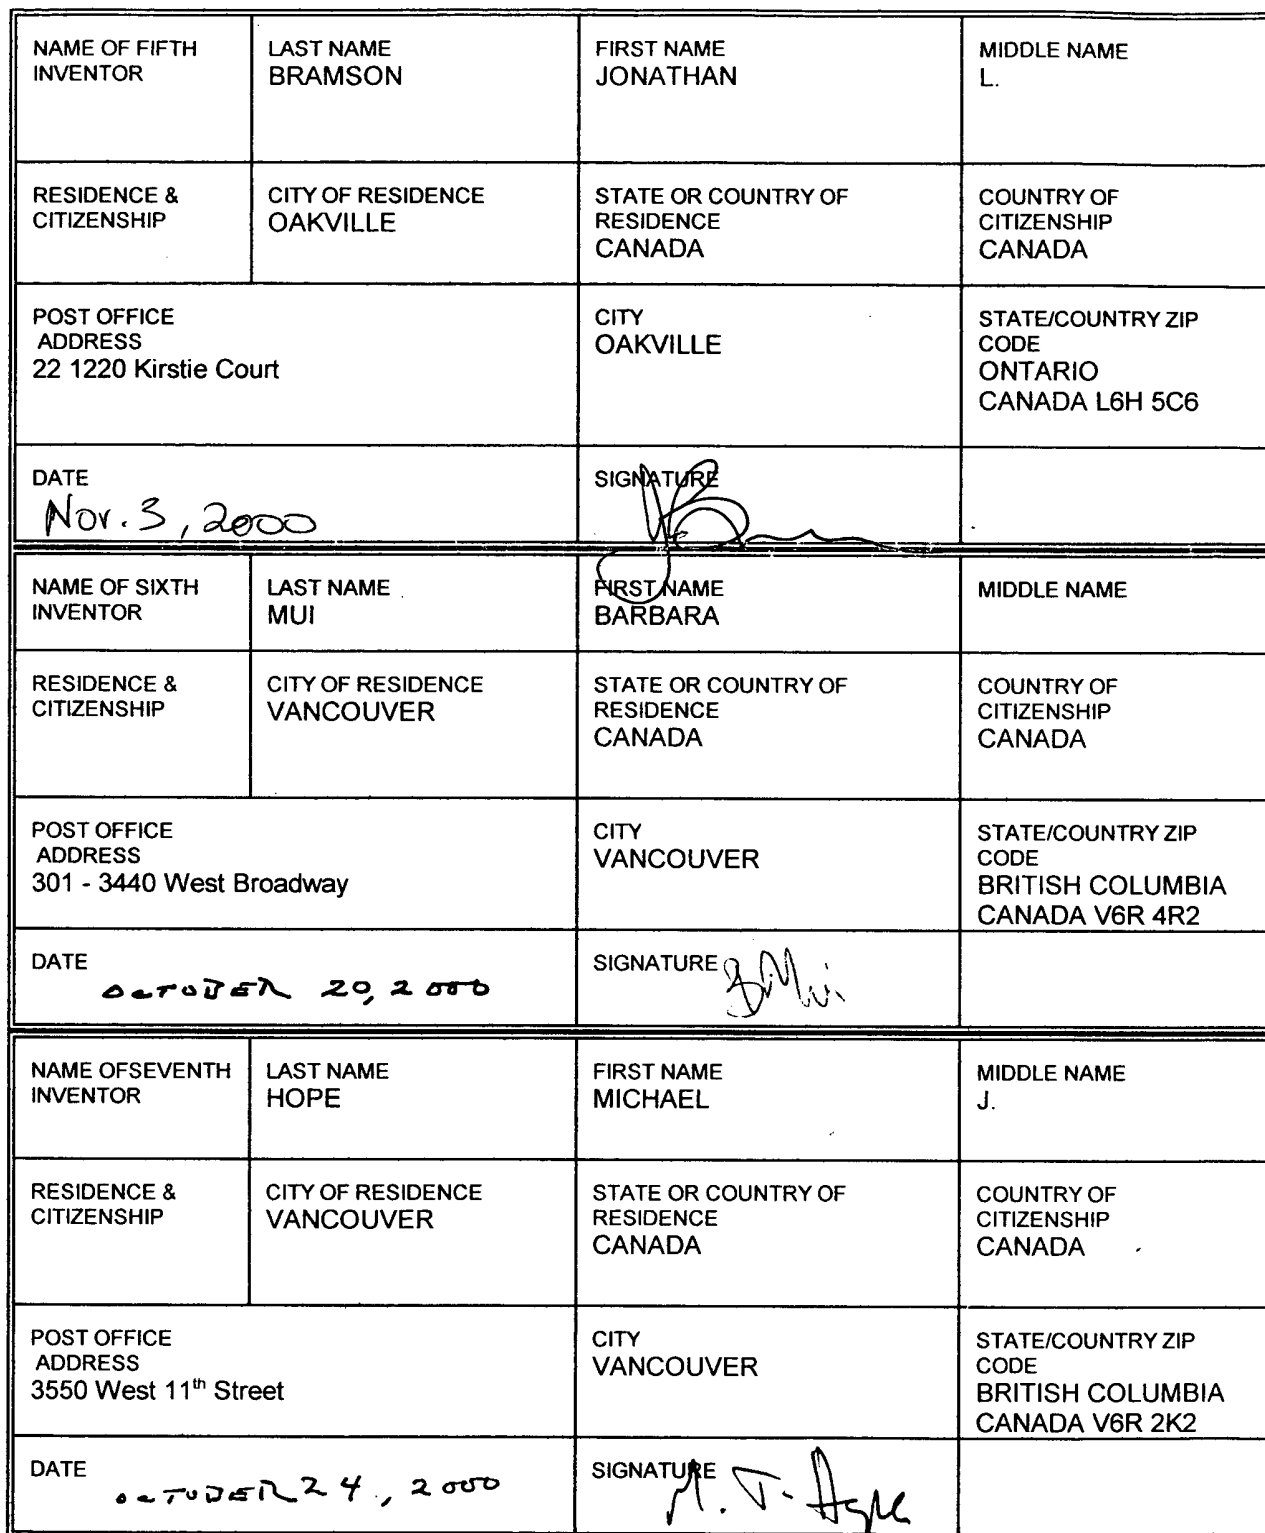 NAME OF FIFTH INVENTOR
LAST NAME
BRAMSON
FIRST NAME
JONATHAN
MIDDLE NAME
L.
RESIDENCE &
CITIZENSHIP
CITY OF RESIDENCE
OAKVILLE
STATE OR COUNTRY OF
RESIDENCE
CANADA
COUNTRY OF
CITIZENSHIP
CANADA
POST OFFICE
ADDRESS
22 1220 Kirstie Court
CITY
OAKVILLE
STATE/COUNTRY ZIP
CODE
ONTARIO
CANADA L6H 5C6
DATE
Nov. 3, 2000
SIGNATURE
NAME OF SIXTH
INVENTOR
LAST NAME
MUI
FIRST NAME
BARBARA
MIDDLE NAME
RESIDENCE &
CITIZENSHIP
CITY OF RESIDENCE
VANCOUVER
STATE OR COUNTRY OF
RESIDENCE
CANADA
COUNTRY OF
CITIZENSHIP
CANADA
POST OFFICE
ADDRESS
301 - 3440 West Broadway
CITY
VANCOUVER
STATE/COUNTRY ZIP
CODE
BRITISH COLUMBIA
CANADA V6R 4R2
DATE
OCTOBER 20, 2000
SIGNATURE
B Mui
NAME OFSEVENTH
INVENTOR
LAST NAME
HOPE
FIRST NAME
MICHAEL
MIDDLE NAME
J.
RESIDENCE &
CITIZENSHIP
CITY OF RESIDENCE
VANCOUVER
STATE OR COUNTRY OF
RESIDENCE
CANADA
COUNTRY OF
CITIZENSHIP
CANADA
POST OFFICE
ADDRESS
3550 West 11th Street
CITY
VANCOUVER
STATE/COUNTRY ZIP
CODE
BRITISH COLUMBIA
CANADA V6R 2K2
DATE
OCTOBER 24, 2000
SIGNATURE
M. J. Hope